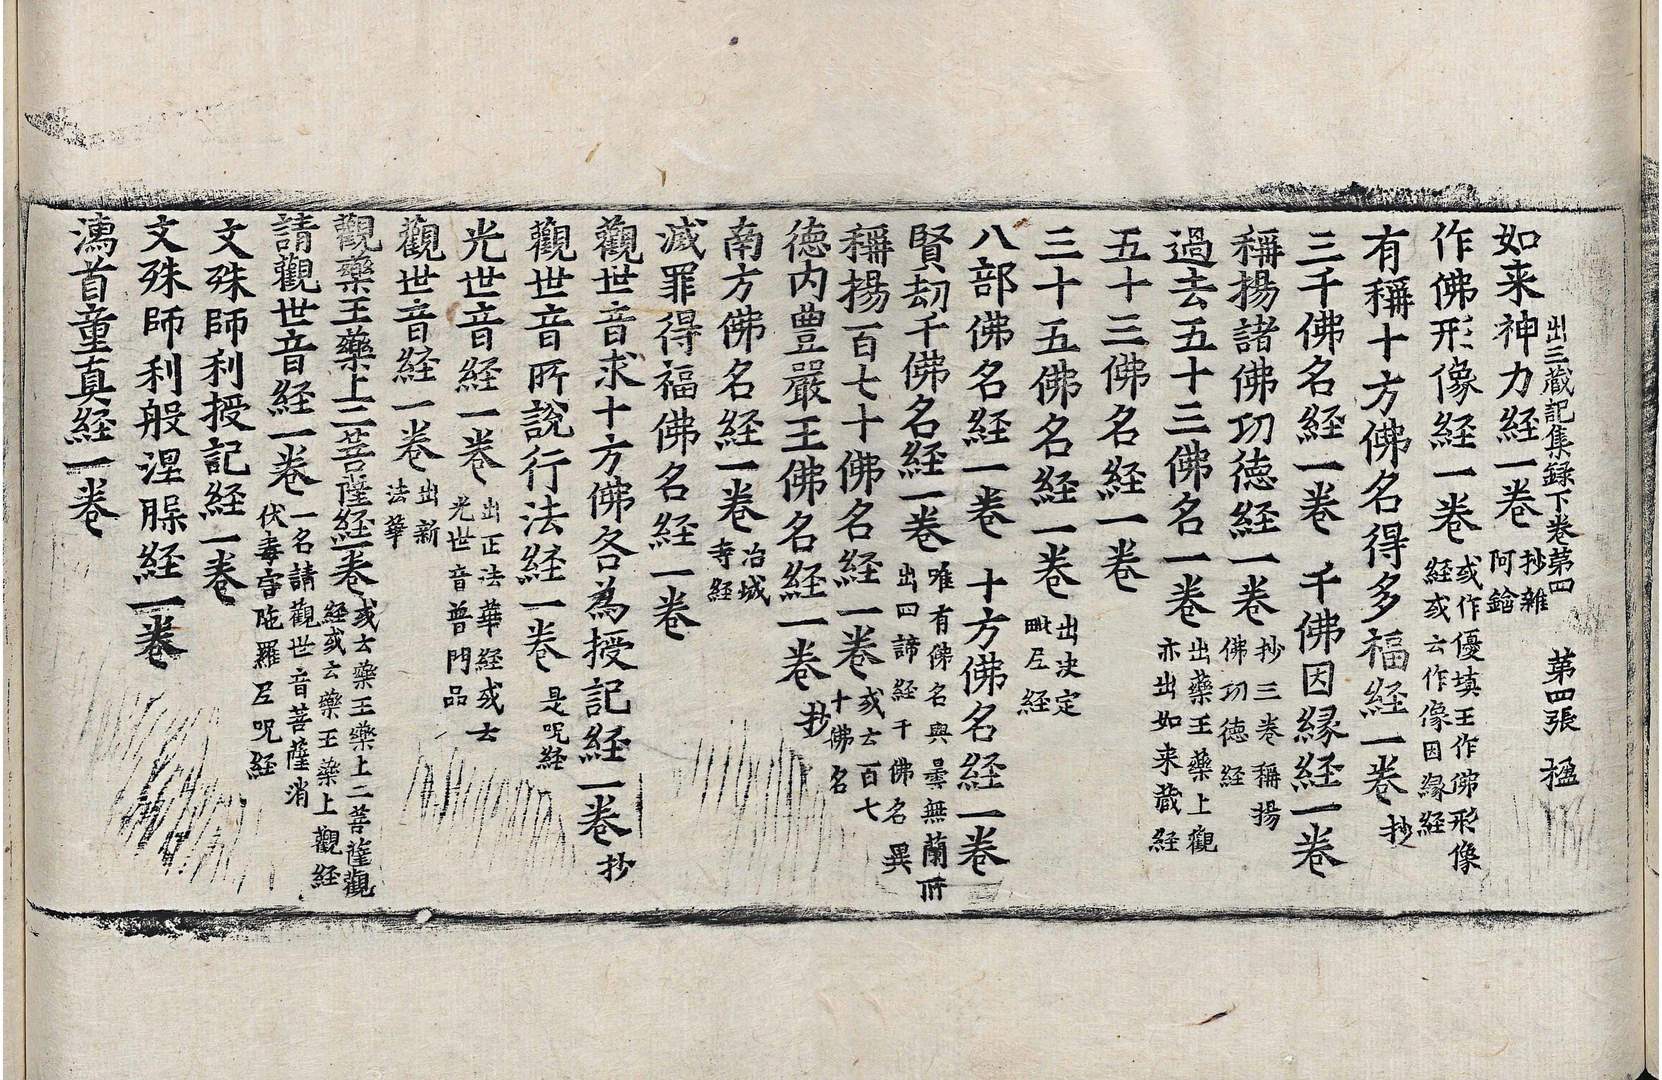 出三蔵記集録下巻第四 第四張 楹
如来神力経一巻 抄雜阿鋡
作佛形像経一巻 或作優填王作佛形像経或云作像因縁経
有稱十方佛名得多福経一巻 抄
三千佛名経一巻 千佛因縁経一巻
稱揚諸佛功徳経一巻 抄三巻稱揚佛功徳経
過去五十三佛名一巻 出藥王藥上觀亦出如来蔵経
五十三佛名経一巻
三十五佛名経一巻 出决定毗尼経
八部佛名経一巻 十方佛名経一巻
賢劫千佛名経一巻 唯有佛名與曇無蘭所出四諦経千佛名異
稱揚百七十佛名経一巻 或云百七十佛名
徳内豊嚴王佛名経一巻 抄
南方佛名経一巻 冶城寺経
滅罪得福佛名経一巻
觀世音求十方佛各為授記経一巻 抄
觀世音所説行法経一巻 是呪経
光世音経一巻 出正法華経或云光世音普門品
觀世音経一巻 出新法華
觀藥王藥上二菩薩経一巻 或云藥王藥上二菩薩觀経或云藥王藥上觀経
請觀世音経一巻 一名請觀世音菩薩消伏毒害陁羅尼呪経
文殊師利授記経一巻
文殊師利般涅槃経一巻
濡首童真経一巻